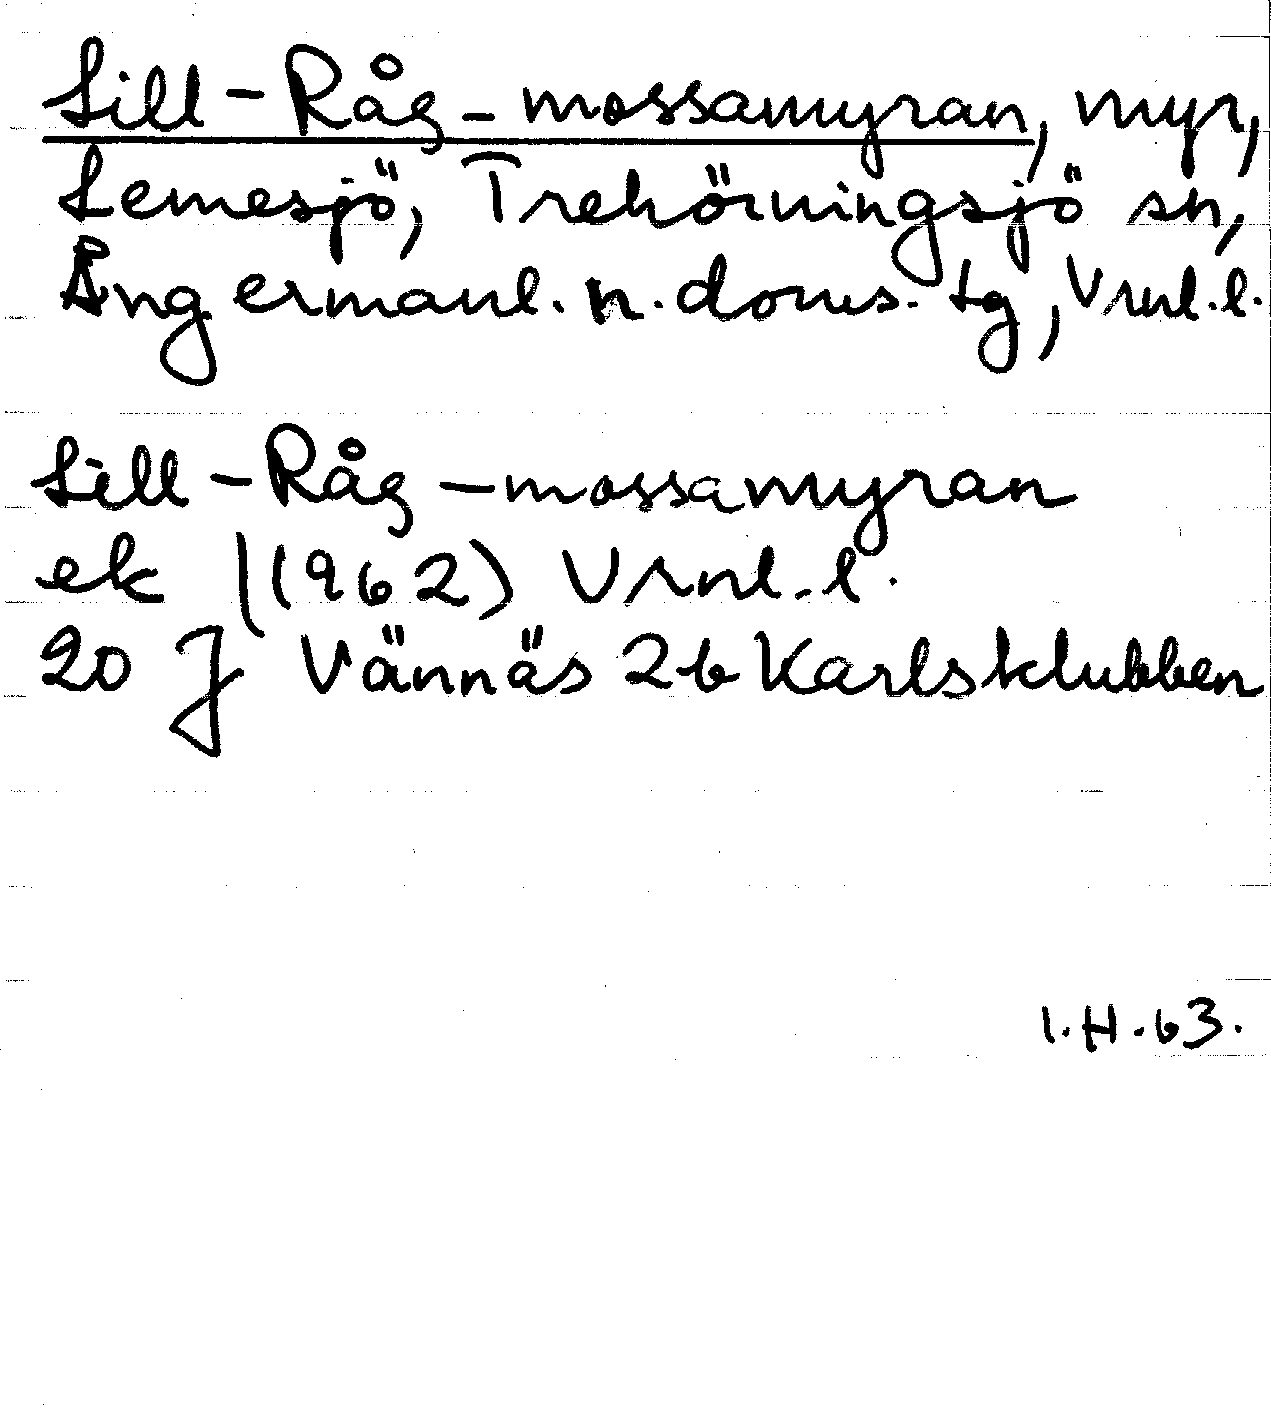 Lill-Råg-mossamyran, myr,
Lemesjö, Trehörningsjö sn,
Ångermanl. n. doms. tg, Vrnl.l.
Lill-Råg-mossamyran
ek (1962) Vrnl.l.
20 J Vännäs 2b Karlsklubben
1.H.63.